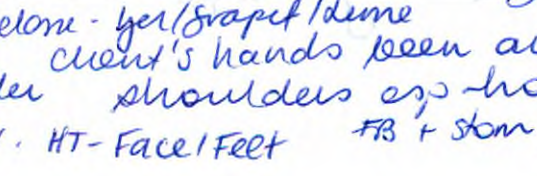 elone - ger/Grapef/Lime
client's hands been a
der shoulders esp ho
. HT - Face/Feet FB + Stom